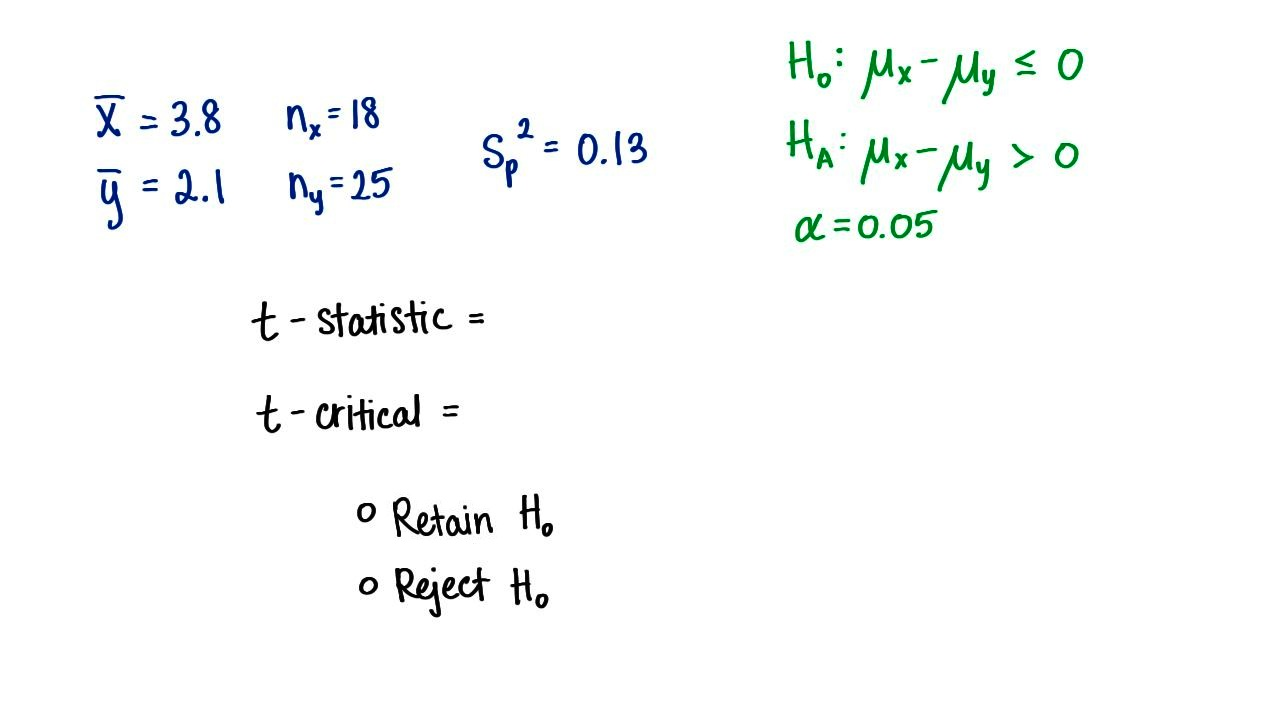 x̄ = 3.8 nₓ = 18
ȳ = 2.1 n_y = 25
S_p² = 0.13
H₀: μₓ - μ_y ≤ 0
H_A: μₓ - μ_y > 0
α = 0.05
t - statistic =
t - critical =
o Retain H₀
o Reject H₀